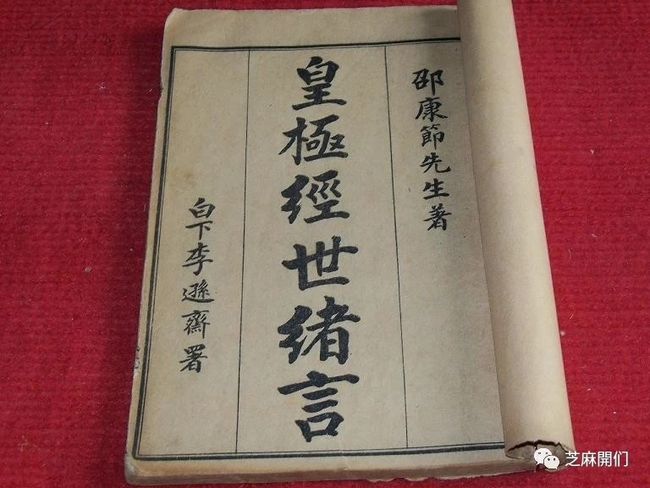 邵康節先生著
皇極經世緒言
白下李遜齋署
芝麻開们